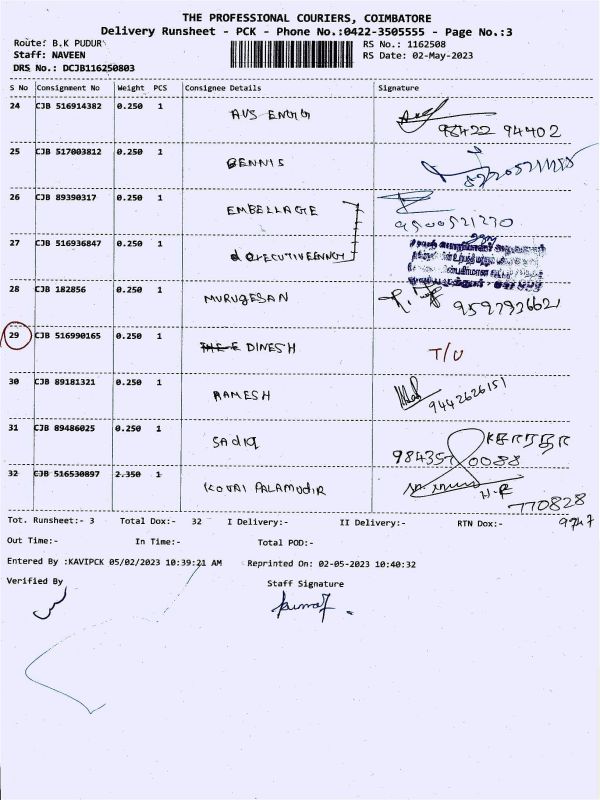 THE PROFESSIONAL COURIERS, COIMBATORE
Delivery Runsheet - PCK - Phone No.:0422-3505555 - Page No.:3
Route: B.K PUDUR
RS No.: 1162508
Staff: NAVEEN
RS Date: 02-May-2023
DRS No.: DCJB116250803
S No Consignment No Weight PCS Consignee Details Signature
24 CJB 516914382 0.250 1 AVS ENGG
98422 94402
25 CJB 517003812 0.250 1 BENNIS
26 CJB 89390317 0.250 1 EMBELLAGE
9500521270
27 CJB 516936847 0.250 1
28 CJB 182856 0.250 1 MURUGESAN
9597936621
29 CJB 516990165 0.250 1 DINESH T/U
30 CJB 89181321 0.250 1 RAMESH
9442626151
31 CJB 89486025 0.250 1 SADIQ
984357 0088
32 CJB 516530897 2.350 1 KOVAI PALAMUDIR
H.R
770828
9747
Tot. Runsheet:- 3 Total Dox:- 32 I Delivery:- II Delivery:- RTN Dox:-
Out Time:- In Time:- Total POD:-
Entered By :KAVIPCK 05/02/2023 10:39:21 AM Reprinted On: 02-05-2023 10:40:32
Verified By Staff Signature